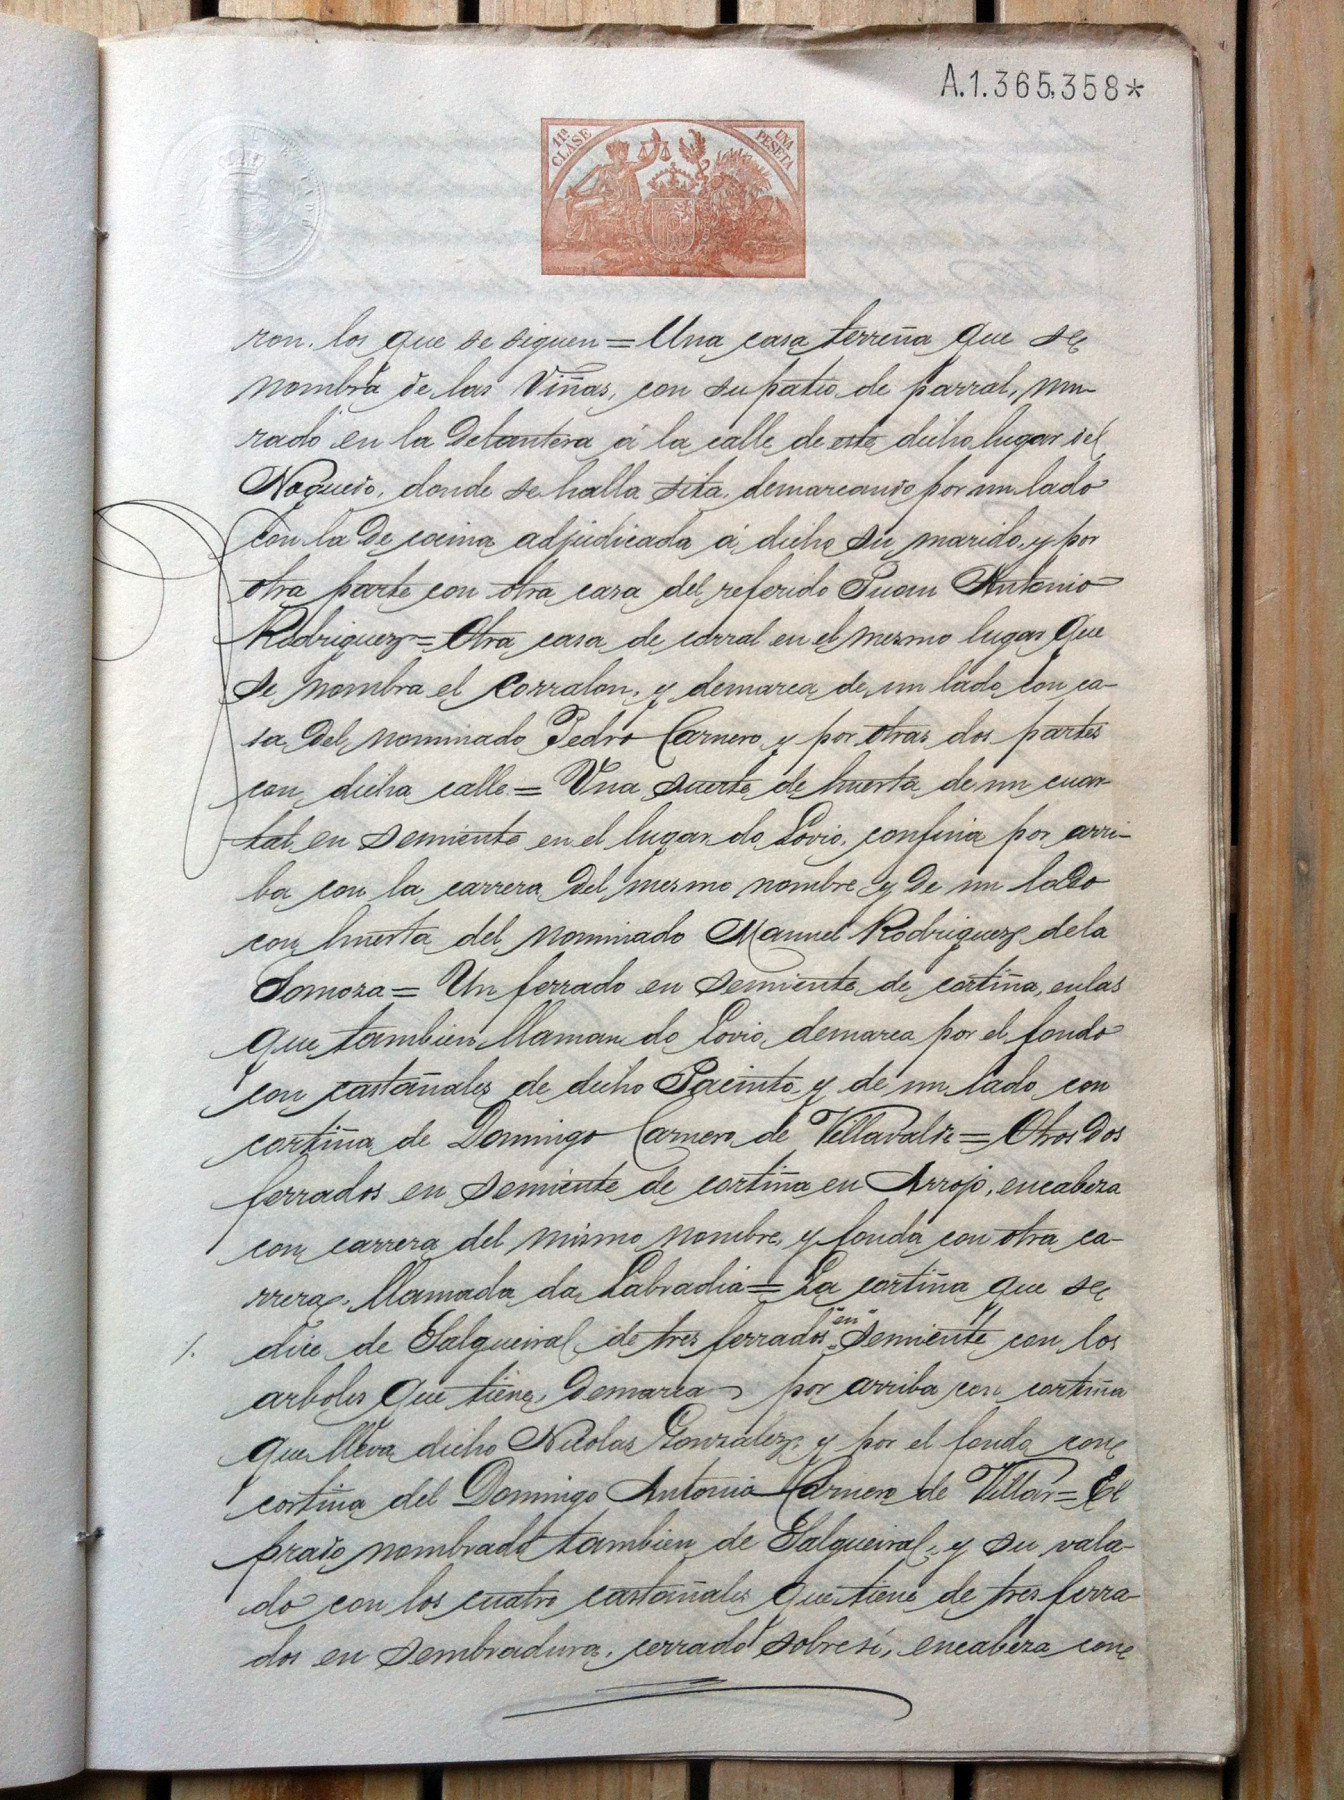 A.1.365,358*
11ª CLASE
UNA PESETA
ron. los que se siguen = Una casa terreña que se
nombra de las Viñas, con su patio de parral, mu-
rado en la delantera á la calle de este dicho lugar del
Noguedo, donde se halla sita, demarcando por un lado
con la de cocina adjudicada á dicho su marido, y por
otra parte con otra casa del referido Juan Antonio
Rodriguez = Otra casa de corral en el mesmo lugar que
se nombra el Corralon, y demarca de un lado con ca-
sa del nominado Pedro Carnero y por otras dos partes
con dicha calle = Una suerte de huerta de un cuar-
tal en semiente en el lugar do Lovio, confina por arri-
ba con la carrera del mesmo nombre y de un lado
con huerta del nominado Manuel Rodriguez dela
Somoza = Un ferrado en semiente de cortiña, enlas
que tambien llaman do Lovio, demarca por el fondo
con castañales de dicho Jacinto y de un lado con
cortiña de Domingo Carnero de = Otros dos
ferrados en semiente de cortiña en Arrojo, encabeza
con carrera del mismo nombre, y fonda con otra ca-
rrera, llamada da Labradia = La cortiña que se
dice de Salgueiral de tres ferrados "en" semiente con los
arboles que tiene, demarca por arriba con cortiña
que lleva dicho Nicolas Gonzalez, y por el fondo con
cortiña del Domingo Antonio Carnero de Villar = El
prado nombrado tambien de Salgueiral, y su vala-
do con los cuatro castañales que tiene de tres ferra-
dos en sembradura, cerrado sobresí, encabeza con